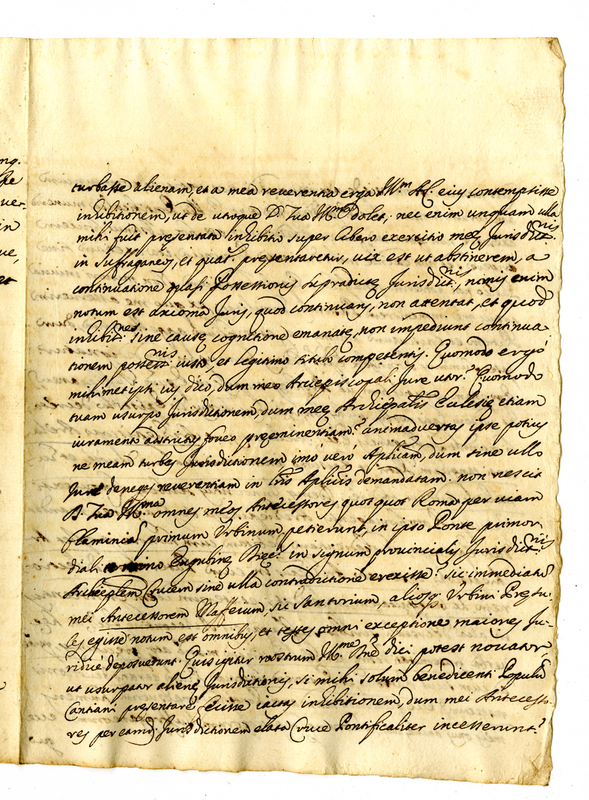 turbasse alienam, et a mea reverentia erga Ill.mam S. eius contempsisse
inhibitionem, ut de utroque D. Tua Ill.ma dolet; nec enim unquam ulla
mihi fuit presentata inhibitio super libero exercitio meę Jurisdict.nis
in Suffraganeos, et quat. presentaretur, vix est ut abstinerem, a
continuatione quasi Possessionis supradictę Jurisdict.nis, nimis enim
notum est axioma Juris, quod continuans, non attentat, et quod
inhibit.nes sine causę cognitione emanatę, non impediunt continua
tionem possess.nis iusto, et legitimo titulo competentis. Quomodo ergo
mihimetipsi ius dico, dum meo Archiepiscopali Jure utor? Quomodo
tuam usurpo Jurisdictionem, dum meę Archiepalis Eclesię etiam
iuramento adstrictus foveo preeminentiam? animadvertas ipse potius
ne meam turbes Jurisdictionem imo vero Aplicam, dum sine ullo
Jure denegas reverentiam in Lris Aplicis demandatam. non nescit
D. Tua Ill.ma omnes meos Antecessores quotquot Roma per viam
flaminiam primum Urbinum petierunt, in ipso Ponte primor
diali Eugubinę in signum provincialis Jurisdict.nis
Archiepalem Crucem sine ulla contradictione erexisse. Sic immediatum
mei Antecessorem Maffeium sic Santorium, aliosq. Urbini Pręsu-
les egisse notum est omnibus, et testes omni exceptione maiores Ju-
ridice deposuerunt. Quis igitur nostrum Ill.me Dne dici potest novator
ut usurpator alienę Jurisdictionis, si mihi solum benedicenti Populum
Cantiani presentare fuisse inhibitionem, dum mei Antecesso-
res per eamd. Jurisdictionem elata Cruce Pontificaliter incesserunt?